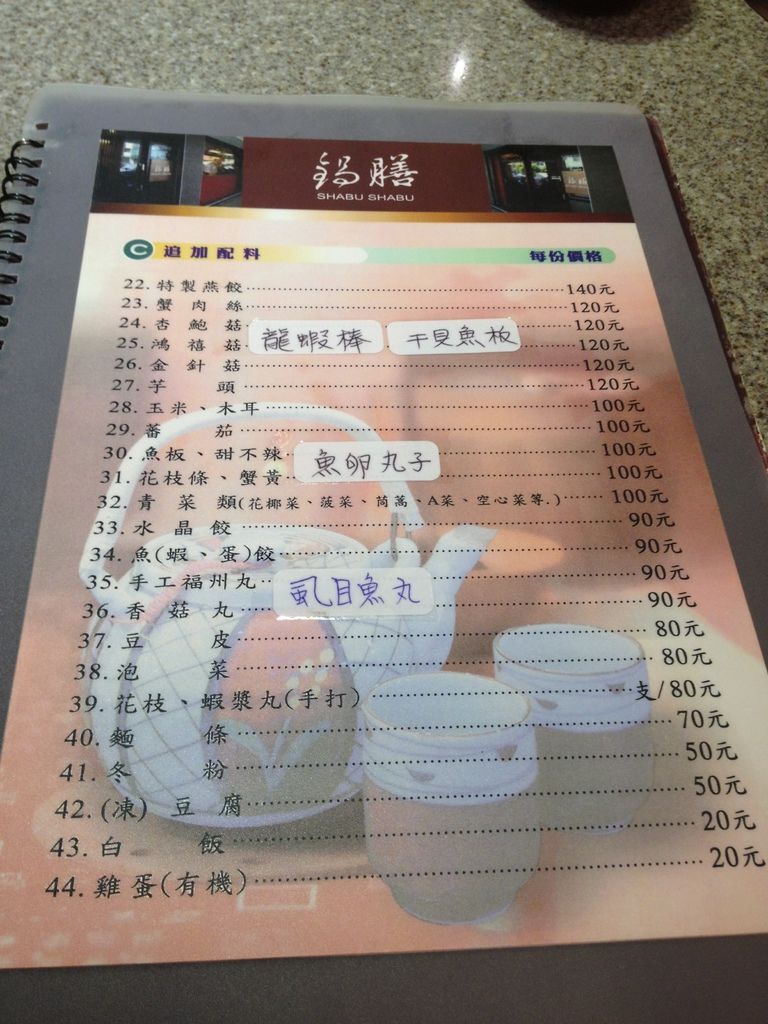 鍋膳
SHABU SHABU
C 追加配料 每份價格
22. 特製燕餃 140元
23. 蟹肉絲 120元
24. 杏鮑菇 120元
25. 鴻禧菇 龍蝦棒 干貝魚板 120元
26. 金針菇 120元
27. 芋頭 120元
28. 玉米、木耳 100元
29. 蕃茄 100元
30. 魚板、甜不辣 魚卵丸子 100元
31. 花枝條、蟹黃 100元
32. 青菜類(花椰菜、菠菜、茼蒿、A菜、空心菜等.) 100元
33. 水晶餃 90元
34. 魚(蝦、蛋)餃 90元
35. 手工福州丸 虱目魚丸 90元
36. 香菇丸 90元
37. 豆皮 80元
38. 泡菜 80元
39. 花枝、蝦漿丸(手打) 支/80元
40. 麵條 70元
41. 冬粉 50元
42. (凍)豆腐 50元
43. 白飯 20元
44. 雞蛋(有機) 20元